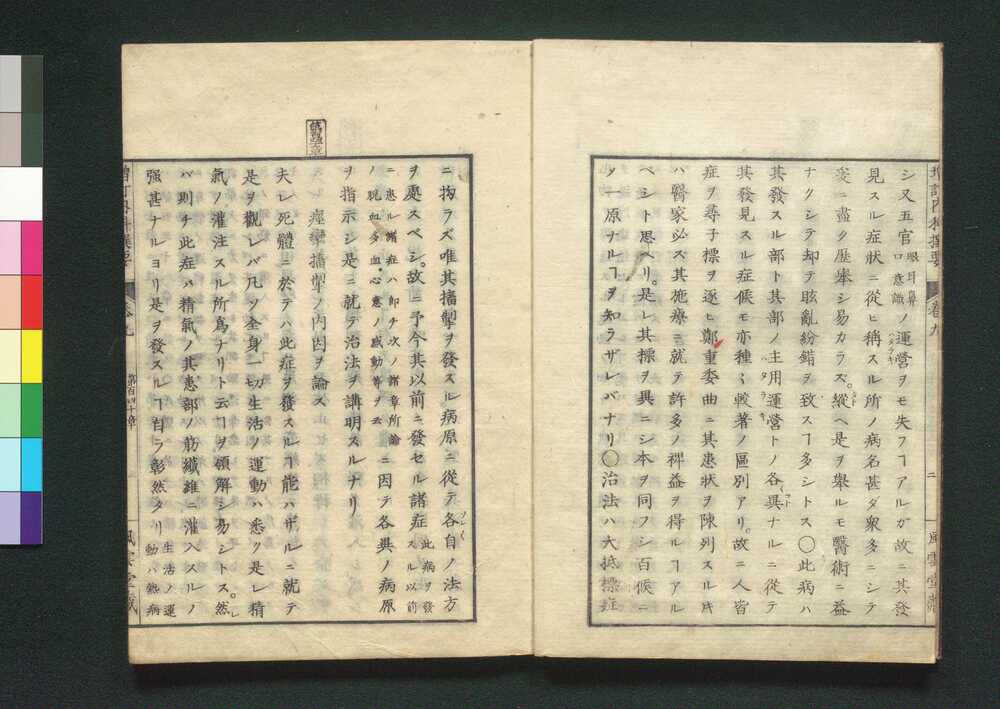 増訂内科撰要 巻九 二 風雲堂蔵
シ又五官眼耳鼻口意識ノ運営ヲモ失フヿアルガ故ニ其發
見スル症狀ニ從ヒ稱スル所ノ病名甚ダ衆多ニシテ
変ニ盡ク歴挙シ易カラズ。縦ヘ是ヲ舉ルモ醫術ニ益
ナクシテ却テ眩亂紛錯ヲ致スヿ多シトス〇此病ハ
其發スル部ト其部ノ主用運營トノ各異ナルニ從テ
其發見スル症候モ亦種〻較著ノ區別アリ。故ニ人皆
症ヲ尋子標ヲ逐ヒ鄭重委曲ニ其患狀ヲ陳列スル𪜈
ハ醫家必ズ其施療ニ就テ許多ノ裨益ヲ得ルヿアル
ベシト思ヘリ。是レ其標ヲ異ニシ本ヲ同フシ百候ニ
タ一原ナルヿヲ知ラザレバナリ〇治法ハ大抵標症
ニ拘ラズ唯其搐搦ヲ發スル病原ニ從テ各自ノ法方
ヲ處スベシ。故ニ予今其以前ニ發セル諸症此病ヲ發スル以前
ニ患ル諸症ハ即チ次ノ諸章所論ノ脱血多血心意ノ感動等ヲ云ニ因テ各異ノ病原
ヲ指示シ是ニ就テ治法ヲ講明スルナリ
痙攣搐搦ノ内因ヲ論ス
夫レ死體ニ於テハ此症ヲ發スルヿ能ハザルニ就テ
是ヲ觀レバ凡ソ全身一切生活ノ運動ハ悉ク是レ精
氣ノ灌注スル所為ナリト云ヿヲ領解シ易シトス。然レ
バ則チ此症ハ精氣ノ其患部ノ筋纖維ニ灌入スルノ
強甚ナルヨリ是ヲ發スルヿ自ラ彰然タリ生活ノ運動ハ熱病
増訂内科撰要 巻九 第百四十章 風雲堂蔵